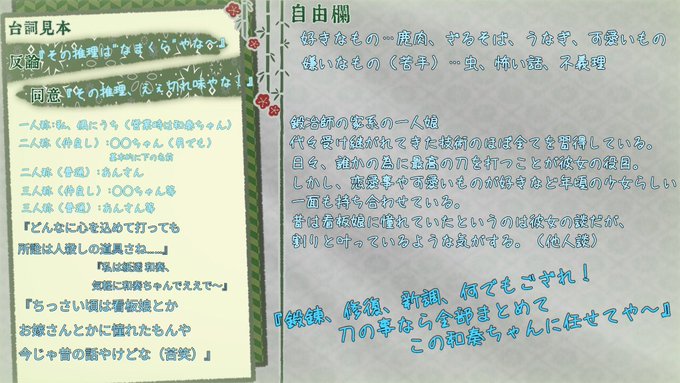 台詞見本
反論
『その推理は"なまくら"やな〜』
同意
『その推理、ええ切れ味やな!』
一人称:私、偶にうち(営業時は和奏ちゃん)
二人称(仲良し):〇〇ちゃん(男でも)
基本的に下の名前
二人称(普通):あんさん
三人称(仲良し):〇〇ちゃん等
三人称(普通):あんさん等
『どんなに心を込めて打っても
所詮は人殺しの道具さね……』
『私は紙透 和奏、
気軽に和奏ちゃんでええで〜』
『ちっさい頃は看板娘とか
お嫁さんとかに憧れたもんや
今じゃ昔の話やけどな(苦笑)』
自由欄
好きなもの…鹿肉、ざるそば、うなぎ、可愛いもの
嫌いなもの(苦手)…虫、怖い話、不義理
鍛冶師の家系の一人娘
代々受け継がれてきた技術のほぼ全てを習得している。
日々、誰かの為に最高の刀を打つことが彼女の役目。
しかし、恋愛事や可愛いものが好きなど年頃の少女らしい
一面も持ち合わせている。
昔は看板娘に憧れていたというのは彼女の談だが、
割りと叶っているような気がする。(他人談)
『鍛錬、修復、新調、何でもござれ!
刀の事なら全部まとめて
この和奏ちゃんに任せてや〜』